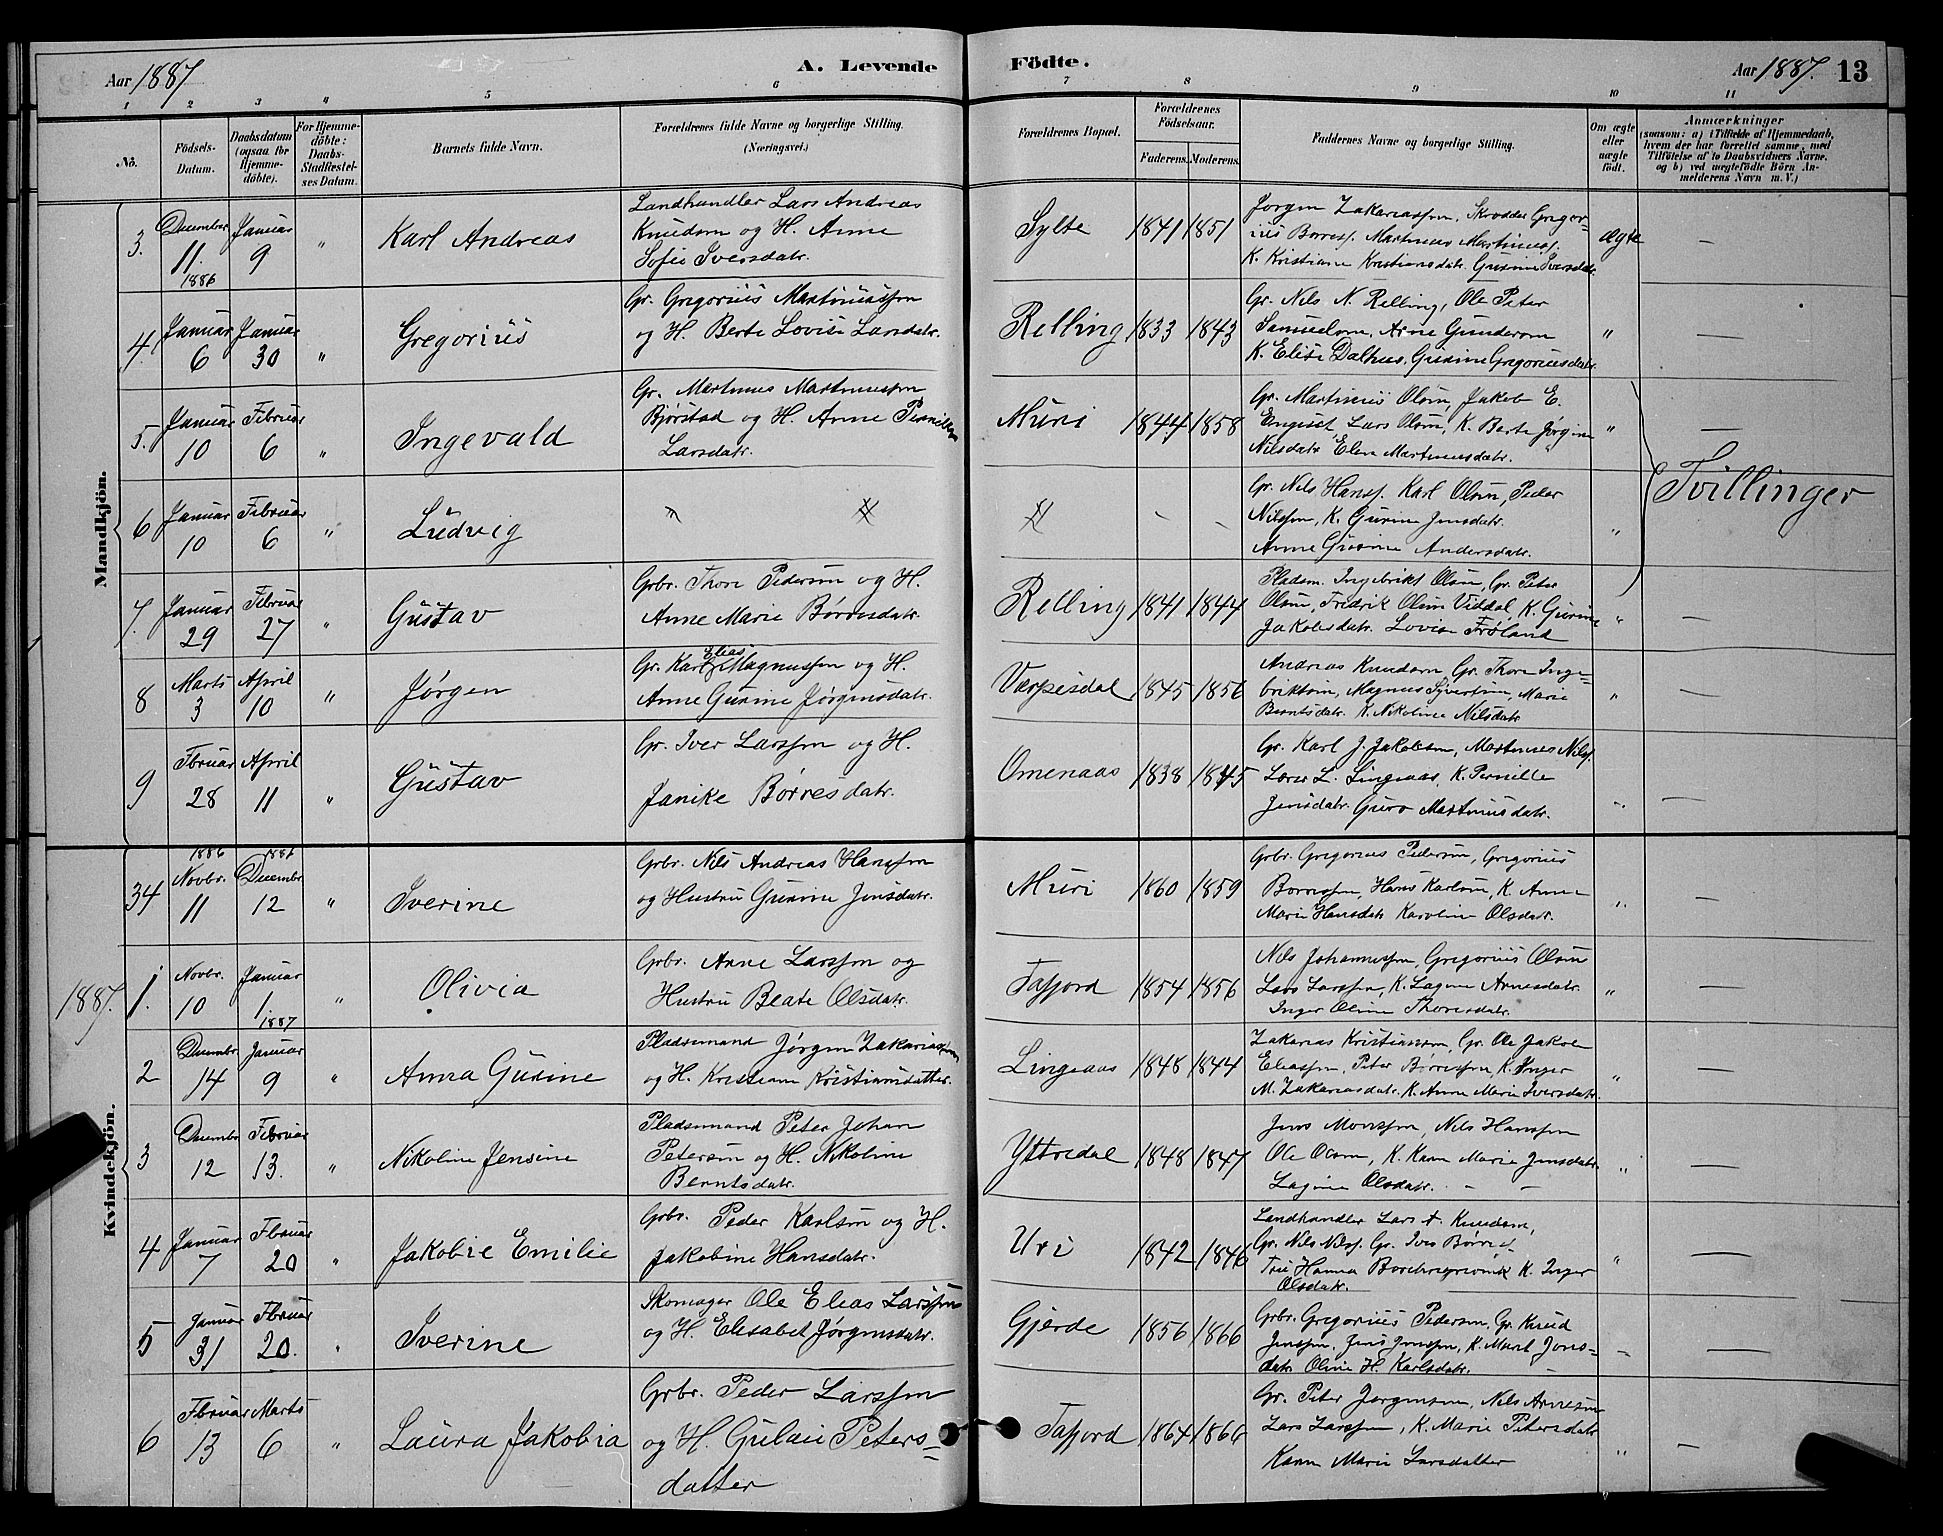 Aar 1887
A. Levende
Födte.
Aar 1887.
13
1 2 3 4 5 6 7 8 9 10 11
No.
Födsels-
Datum.
Daabsdatum
(ogsaa for
Hjemme-
döbte).
For Hjemme-
döbte:
Daabs-
Stadfæstel-
ses Datum.
Barnets fulde Navn.
Forældrenes fulde Navne og borgerlige Stilling.
(Næringsvei.)
Forældrenes Bopæl.
Forældrenes
Födselsaar.
Faderens. Moderens.
Faddernes Navne og borgerlige Stilling.
Om ægte
eller
uægte
födt.
Anmærkninger
(saasom: a) i Tilfælde af Hjemmedaab,
hvem der har forrettet samme, med
Tilföielse af to Daabsvidners Navne,
og b) ved uægtefödte Börn An-
melderens Navn m. V.)
Mandkjön.
3. December 11. 1886
Januar 9
"
Karl Andreas
Landhandler Lars Andreas
Knudsen og H. Anne
Sofie Iversdatr.
Sylte
1841 1851
Jørgen Zakariassen, Skrædder Gregor-
ius Børress. Martinus Martinuss.
K. Kristiane Kristiansdatr. Gurine Iversdatr.
ægte
—
4. Januar 6
Januar 30
"
Gregorius
Gr. Gregorius Martinussen
og H. Berte Lovise Larsdatr.
Relling
1833 1843
Gr. Nils N. Relling, Ole Peter
Samuelsen, Arne Gundersen
K. Elise Dalhus, Gurine Gregoriusdatr.
"
—
5. Januar 10
Februar 6
"
Ingevald
Gr. Martinus Martinussen
Bjørstad og H. Anne Pernille
Larsdatr.
Muri
1844 1858
Gr. Martinus Olsen, Jakob E.
Engeset Lars Olsen, K. Berte Jørgine
Nilsdatr Elen Martinusdatr.
"
—
Tvillinger
6 Januar 10
Februar 6
"
Ludvig
Gr. Nils Hanss. Karl Olsen, Peder
Nilssen, K. Gurine Jensdatr.
Anne Gurine Andersdatr.
"
7. Januar 29
Februar 27
"
Gustav
Grbr. Thore Pedersen og H.
Anne Marie Børresdatr.
Relling
1841 1844
Pladsm. Ingebrikt Olsen, Gr. Peter
Olsen, Fredrik Olsen Viddal, K. Gurine
Jakobsdatr. Lovise Frøland
"
—
8 Marts 3
April 10
"
Jørgen
Elias
Gr. Karl Magnussen og H.
Anne Gurine Jørgensdatr.
Værpesdal
1845 1856
Andreas Knudsen Gr. Thore Inge-
briktsen, Magnus Syvertsen, Marie
Berntsdatr. K. Nikoline Nilsdatr
"
—
9 Februar 28
April 11
"
Gustav
Gr. Iver Larssen og H.
Janike Børresdatr.
Omenaas
1838 1845
Gr. Karl J. Jakobsen, Martinus Nilss.
Lars L. Lingeaas, K. Pernille
Jensdatr. Guro Martinusdatr.
"
—
Kvindekjön.
34 1886 Novbr. 11
1886 Decembr. 12
"
Iverine
Grbr. Nils Andreas Hanssen
og Hustru Gurine Jensdatr.
Muri
1860 1859
Grbr. Gregorius Pedersen, Gregorius
Børressen, Hans Karlsen, K. Anne
Marie Hansdatr Karoline Olsdatr.
"
—
1887.
1. Novbr. 10
Januar 1. 1887
"
Olivia
Grbr. Arne Larssen og
Hustru Beate Olsdatr.
Tafjord
1854 1856
Nils Johannessen, Gregorius Olsen
Lars Larssen, K. Lagine Arnesdatr.
Inger Oline Thoresdatr.
"
—
2 Decembr. 14
Januar 9
"
Anna Gurine
Pladsmand Jørgen Zakariassen
og H. Kristiane Kristiansdatter.
Lingeaas
1848 1844
Zakarias Kristiansen, Gr. Ole Jakob
Eliassen, Peter Børressen, K. Inger
M. Zakariasdatr. K. Anne Marie Iversdatr.
"
—
3 Decembr. 12
Februar 13.
"
Nikoline Jensine
Pladsmand Peter Johan
Petersen og H. Nikoline
Berntsdatr.
Yttredal
1848 1847
Jens Monssen, Nils Hanssen
Ole Olsen, K. Karen Marie Jensdatr.
Lagine Olsdatr. - -
"
—
4 Januar 7
Februar 20
"
Jakobie Emilie
Grbr. Peder Karlsen og H.
Jakobine Hansdatr.
Uri
1842 1846
Landhandler Lars A. Knudsen,
Gr. Nils Nilss. Gr. Iver Børres.
Frk. Hanna K. Inger
Olsdatr.
"
—
5 Januar 31
Februar 20.
"
Iverine
Skomager Ole Elias Larssen
og H. Elisabet Jørgensdatr.
Gjerde
1856 1866
Grbr. Gregorius Pedersen, Gr. Knud
Jenssen, Jens Jenssen, K. Marit Jons-
datr. Oline H. Karlsdatr. —
—
6 Februar 13
Marts 6
"
Laura Jakobia
Grbr. Peder Larssen
og H. Gulaie Peters-
datter
Tafjord
1864 1866
Gr. Peter Jørgensen, Nils Arnesen
Lars Larssen, K. Marie Petersdatr
Karen Marie Larsdatter
"
—